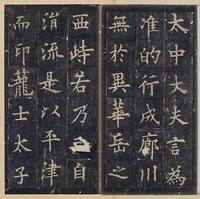 太中大夫言為
准的行成廊川
無於異華岳之
西峙若乃自
流是以平津
而印蘢士太子